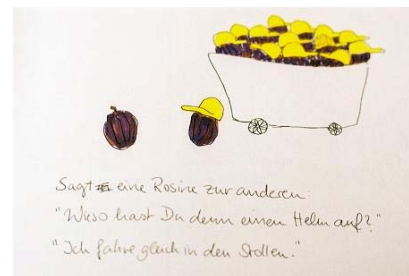 Sagt eine Rosine zur anderen:
"Wieso hast Du denn einen Helm auf?"
"Ich fahre gleich in den Stollen."